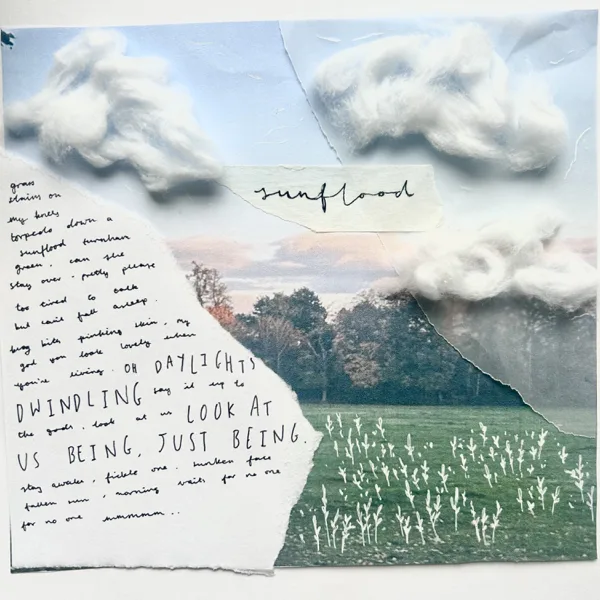 sunflood
grass
stains on
my knees
torpedo down a
sunflood turnham
green. can she
stay over. pretty please
too tired to talk
but can't fall asleep.
bug bits pinking skin, my
god you look lovely when
you're living. OH DAYLIGHTS
DWINDLING say it up to
the gods. look at us LOOK AT
US BEING, JUST BEING.
stay awake, fickle one. sunken face
fallen sun, morning waits for no one
for no one mmmmm..